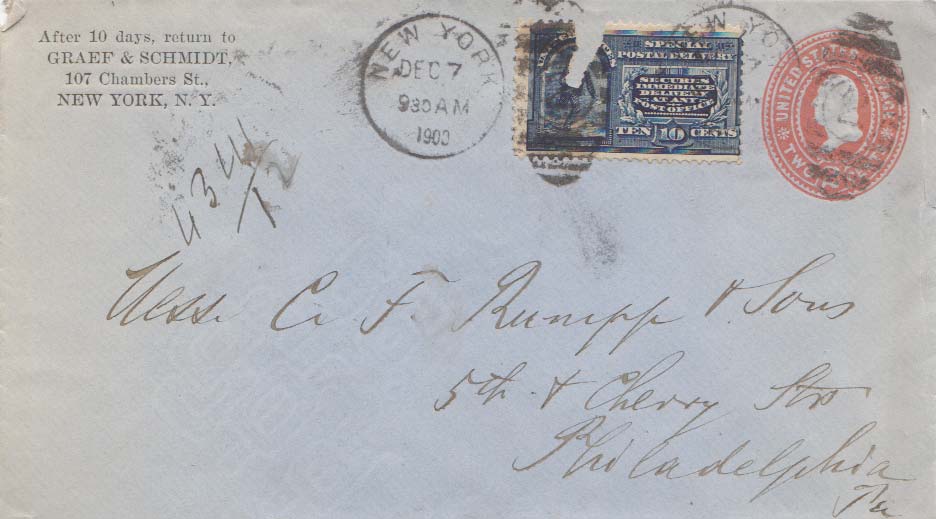 After 10 days, return to
GRAEF & SCHMIDT,
107 Chambers St.,
NEW YORK, N. Y.
NEW YORK
DEC 7
930 AM
1900
SPECIAL
POSTAL DELIVERY
SECURES
IMMEDIATE
DELIVERY
AT ANY
POST OFFICE
TEN 10 CENTS
NEW YO
UNITED STATES
TWO
434
12
Mess. C. F. Rumpp & Sons
5th & Cherry Sts
Philadelphia
Pa